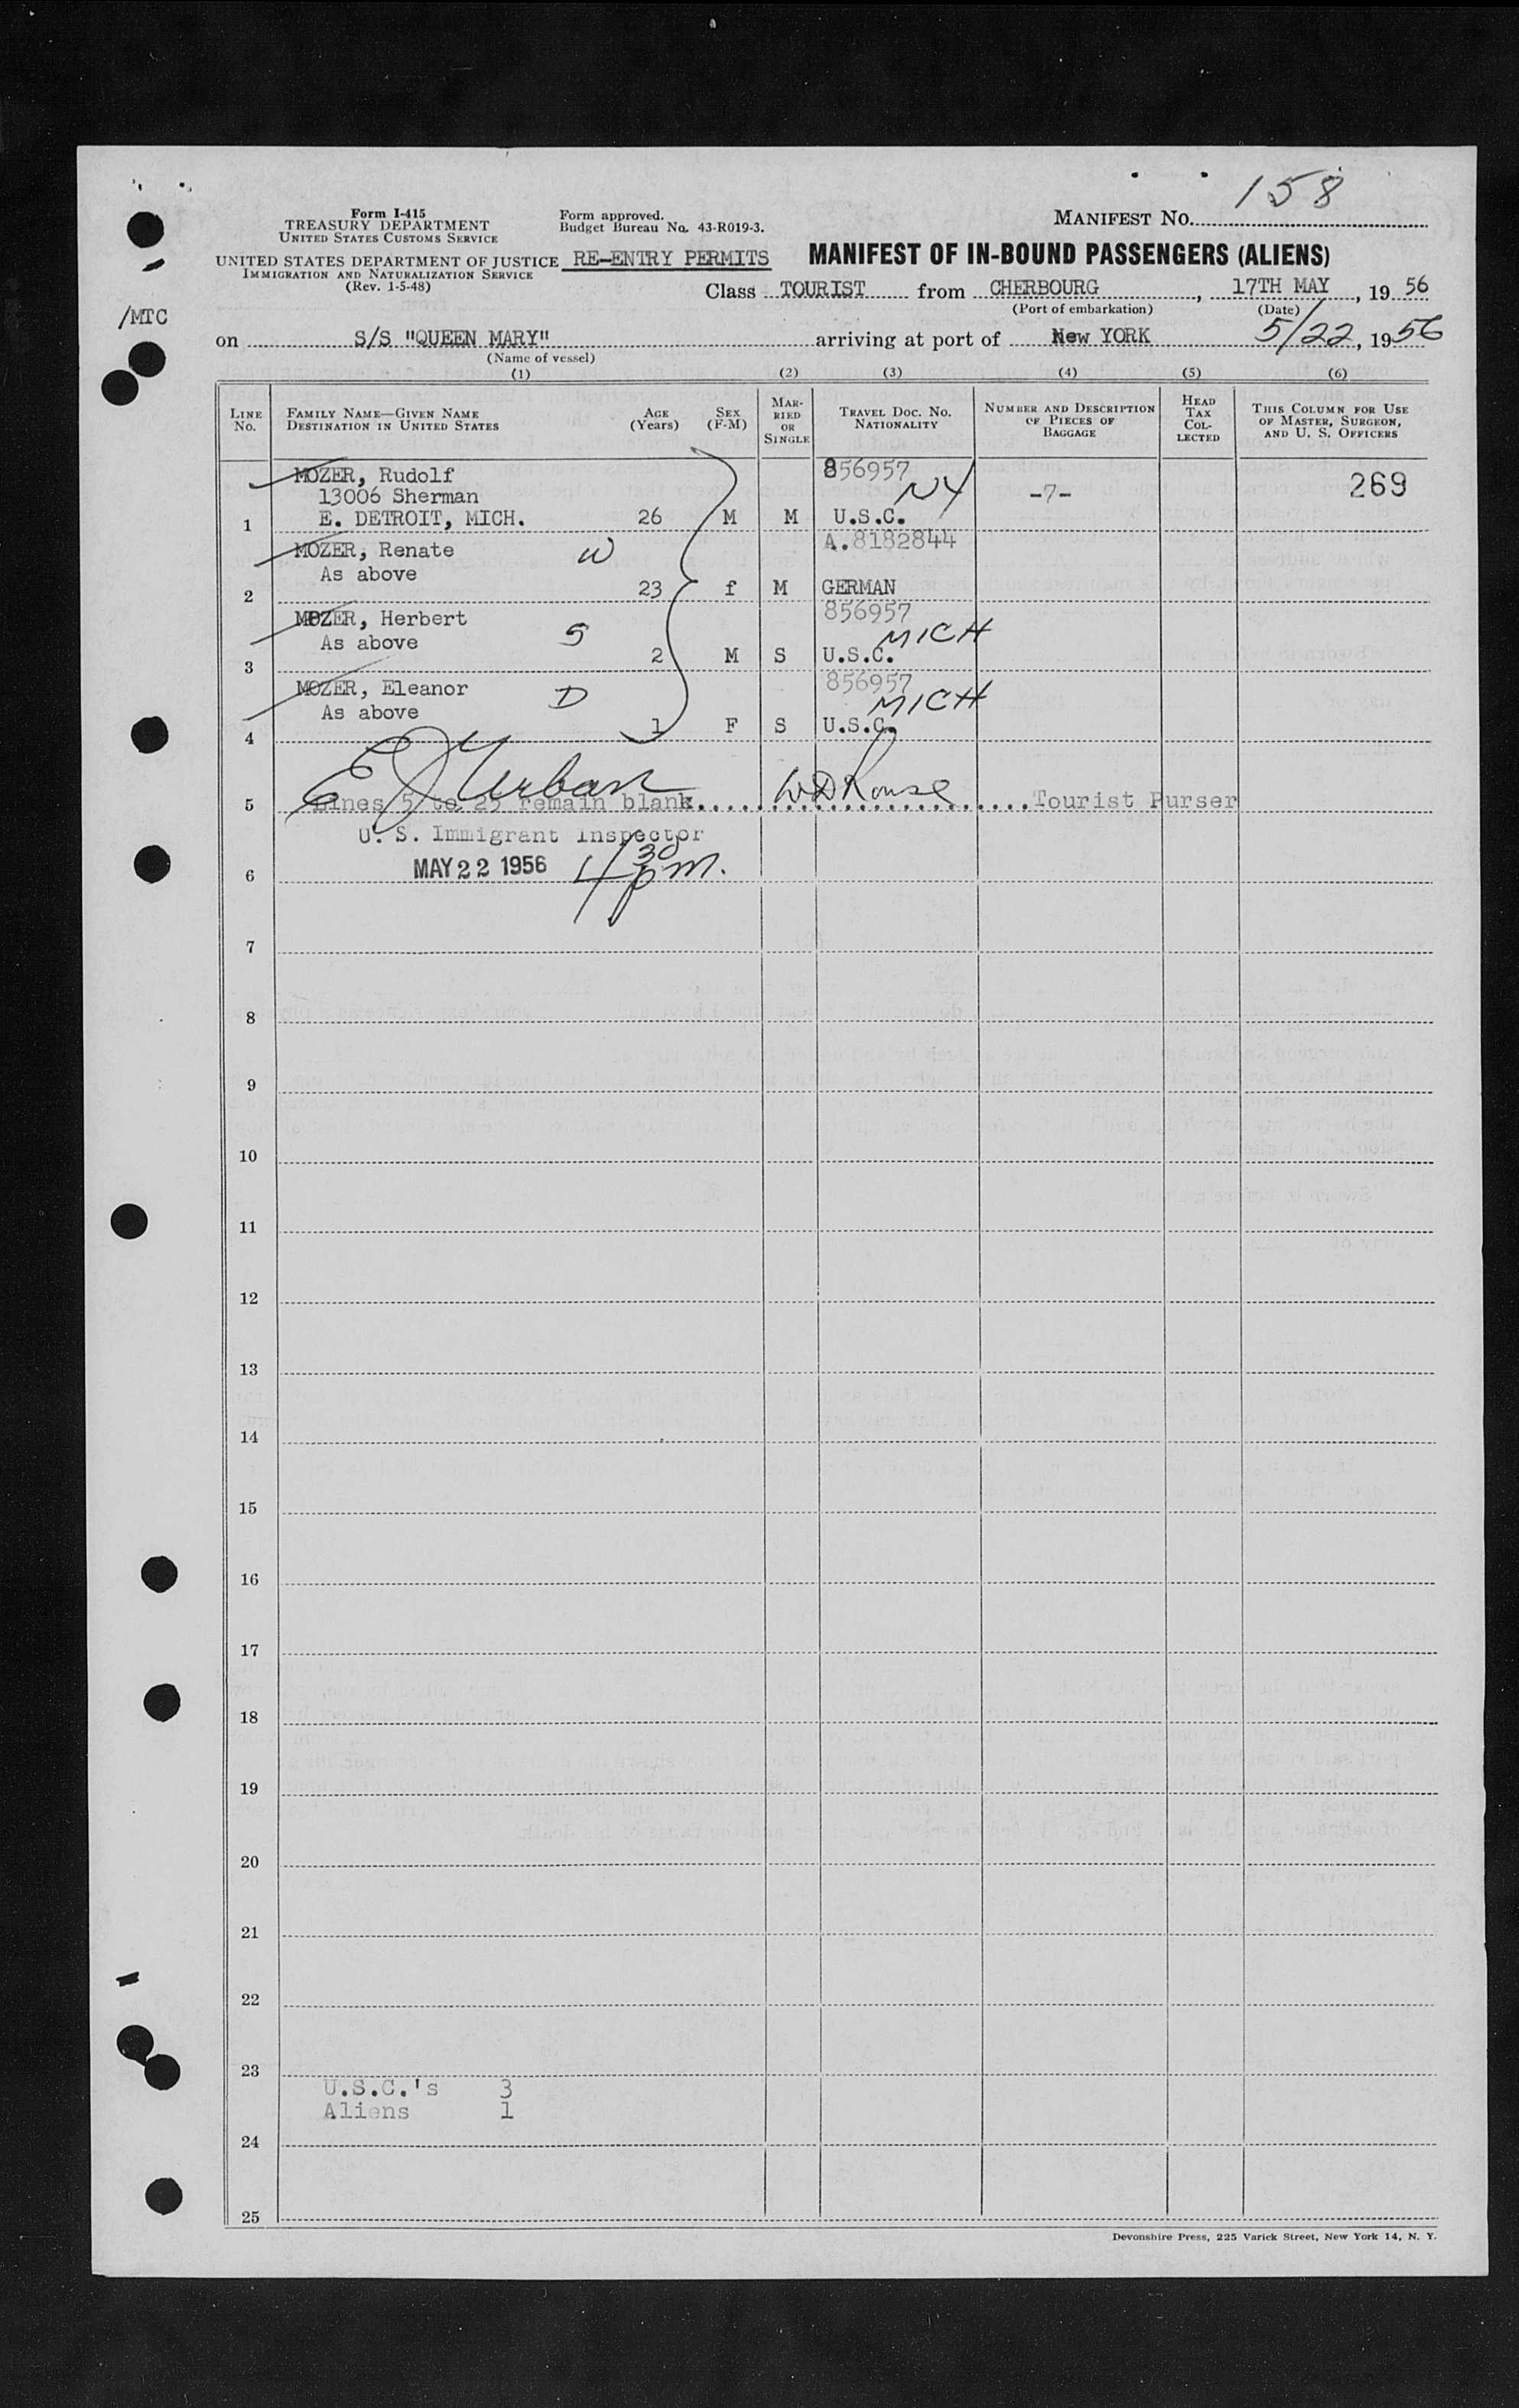 158
Form I-415
TREASURY DEPARTMENT
UNITED STATES CUSTOMS SERVICE
Form approved.
Budget Bureau No. 43-R019-3.
MANIFEST NO.
UNITED STATES DEPARTMENT OF JUSTICE RE-ENTRY PERMITS MANIFEST OF IN-BOUND PASSENGERS (ALIENS)
IMMIGRATION AND NATURALIZATION SERVICE
(Rev. 1-5-48)
Class TOURIST from CHERBOURG, 17TH MAY, 19 56
(Port of embarkation) (Date)
/MTC
on S/S "QUEEN MARY" arriving at port of New YORK 5/22, 1956
(Name of vessel)
(1) (2) (3) (4) (5) (6)
LINE NO.
FAMILY NAME—GIVEN NAME
DESTINATION IN UNITED STATES
AGE (Years)
SEX (F-M)
MARRIED OR SINGLE
TRAVEL DOC. NO.
NATIONALITY
NUMBER AND DESCRIPTION OF PIECES OF BAGGAGE
HEAD TAX COLLECTED
THIS COLUMN FOR USE OF MASTER, SURGEON, AND U. S. OFFICERS
MOZER, Rudolf 856957 269
13006 Sherman NY -7-
1 E. DETROIT, MICH. 26 M M U.S.C.
MOZER, Renate W A.8182844
As above
2 23 f M GERMAN
MOZER, Herbert 856957
As above S MICH
3 2 M S U.S.C.
MOZER, Eleanor D 856957
As above MICH
4 1 F S U.S.C.
E J Urban
5 Lines 5 to 25 remain blank. Tourist Purser
U. S. Immigrant Inspector
MAY 22 1956 4 30 pm.
6
7
8
9
10
11
12
13
14
15
16
17
18
19
20
21
22
23
U.S.C.'s 3
Aliens 1
24
25
Devonshire Press, 225 Varick Street, New York 14, N. Y.